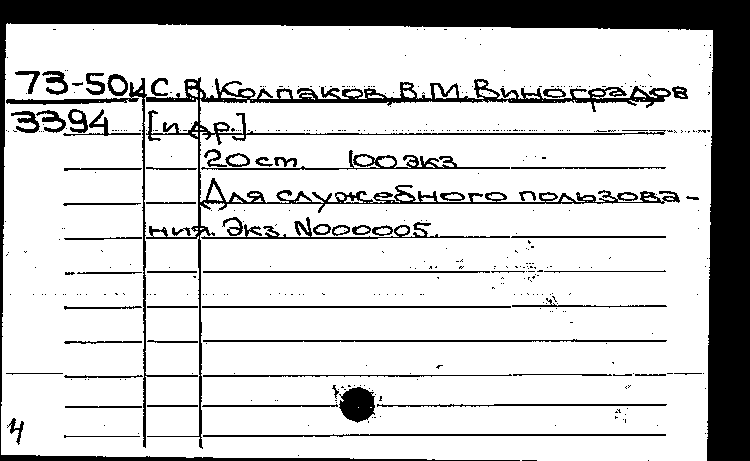 73-50и С.В.Колпаков, В.М.Виноградов
3394 [и др.].
20 ст. 100 экз
Для служебного пользова-
ния. Экз. N000005.
4